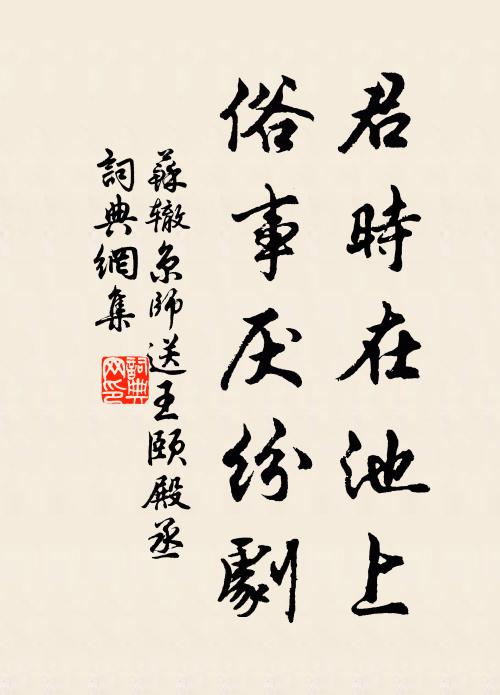 君時在池上
俗事厌紛劇
蘇辙京師送王頤殿丞
詞典網集
詞典
网印